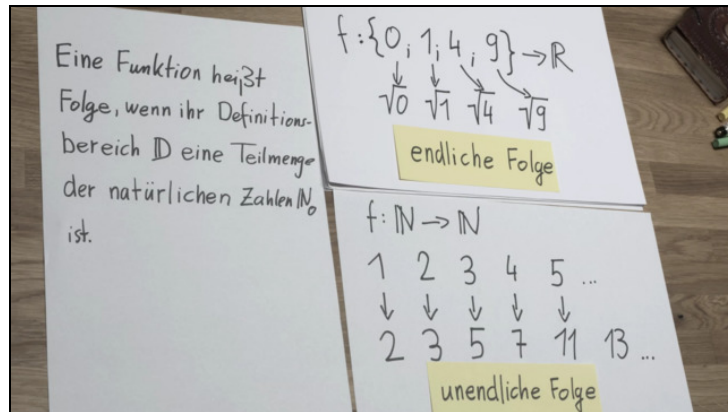 Eine Funktion heißt
Folge, wenn ihr Definitions-
bereich 𝔻 eine Teilmenge
der natürlichen Zahlen ℕ₀
ist.
f:{0, 1, 4, 9} → ℝ
↓ ↓ ↘ ↘
√0 √1 √4 √9
endliche Folge
f: ℕ → ℕ
1 2 3 4 5 ...
↓ ↓ ↓ ↓ ↓
2 3 5 7 11 13 ...
unendliche Folge